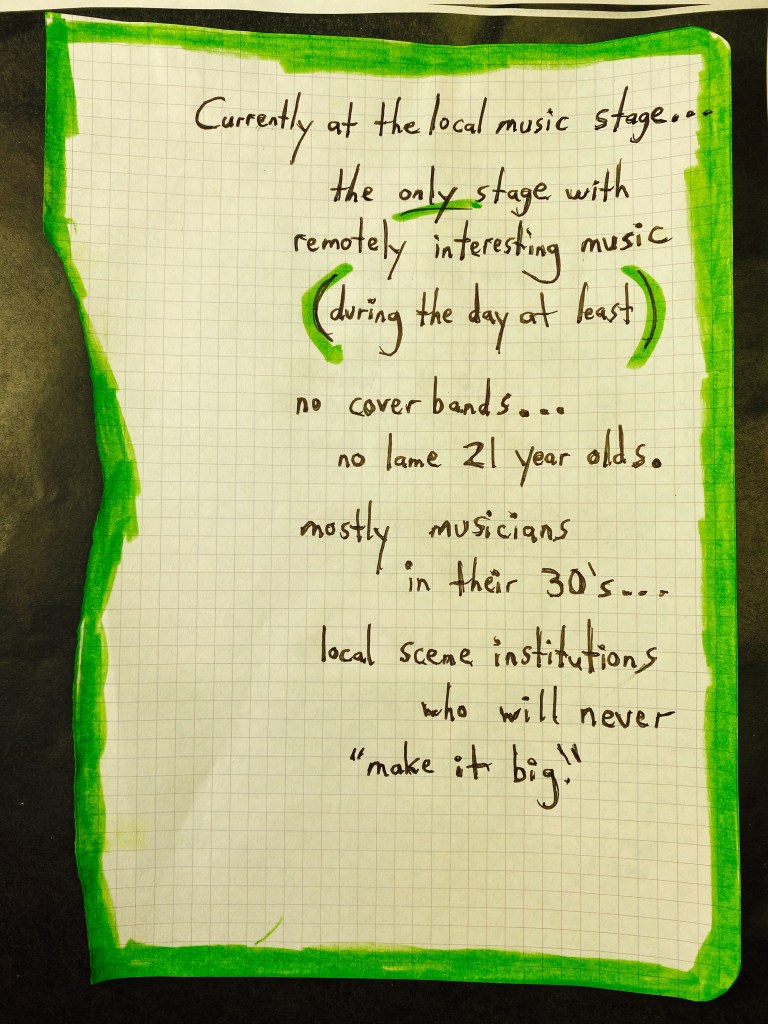 Currently at the local music stage...
the only stage with
remotely interesting music
(during the day at least)
no cover bands...
no lame 21 year olds.
mostly musicians
in their 30's...
local scene institutions
who will never
"make it big."